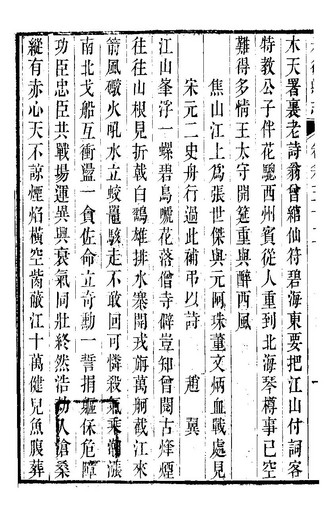 木天署裏老詩翁曾綰仙符碧海東要把江山付詞客
特教公子伴花驄西州賓從人重到北海琴樽事已空
難得多情王太守開筵重與醉西風
焦山江上爲張世傑與元阿珠董文炳血戰處見
宋元二史舟行過此補弔以詩 趙翼
江山峯浮一螺碧鳥嘯花落僧寺僻豈知曾閱古烽煙
往往山根見折戟白鷂雄排水寨開戎旃萬舸截江來
箭風礮火吼水立蛟鼉駭走不敢回可憐殺氣乘潮漲
南北戈船互衝盪一貪佐命立奇勳一誓捐軀保危障
功臣忠臣共戰場運異興衰氣同壯終然浩劫入滄桑
縱有赤心天不諒煙焰橫空胔蔽江十萬健兒魚腹葬